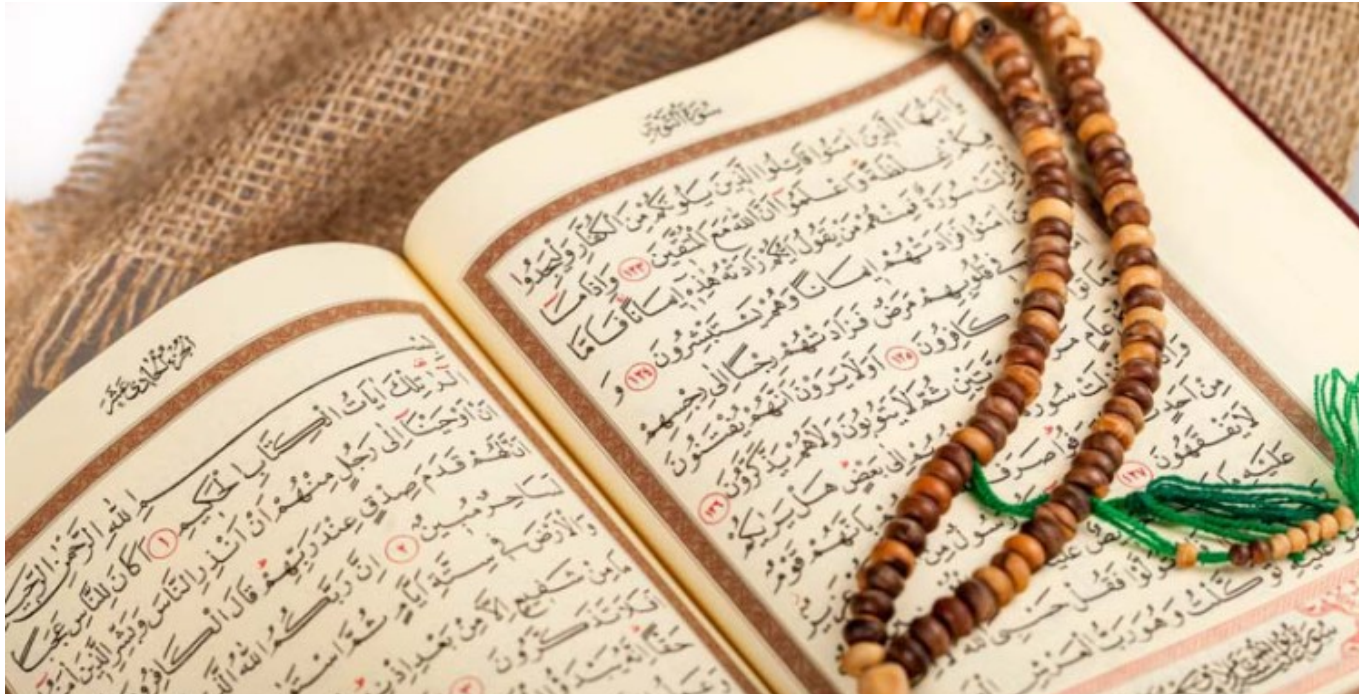 سُورَةُ التَّوْبَةِ
يَا أَيُّهَا الَّذِينَ اٰمَنُوا قَاتِلُوا الَّذِينَ يَلُونَكُمْ مِنَ الْكُفَّارِ وَلْيَجِدُوا
فِيكُمْ غِلْظَةً وَاعْلَمُوا أَنَّ اللّٰهَ مَعَ الْمُتَّقِينَ ١٢٣ وَإِذَا مَا
سُورَةٌ فَمِنْهُمْ مَنْ يَقُولُ أَيُّكُمْ زَادَتْهُ هٰذِهِ إِيمَانًا فَأَمَّا
اٰمَنُوا فَزَادَتْهُمْ إِيمَانًا وَهُمْ يَسْتَبْشِرُونَ ١٢٤ وَ
فِي قُلُوبِهِمْ مَرَضٌ فَزَادَتْهُمْ رِجْسًا إِلٰى رِجْسِهِمْ
كَافِرُونَ ١٢٥ أَوَلَا يَرَوْنَ أَنَّهُمْ يُفْتَنُونَ
عَامٍ ثُمَّ لَا يَتُوبُونَ وَلَا هُمْ يَذَّكَّرُونَ ١٢٦
سُورَةٌ إِلٰى بَعْضٍ هَلْ يَرٰيكُمْ
مِنْ أَحَدٍ صَرَفَ بِأَنَّهُمْ قَوْمٌ
لَا يَفْقَهُونَ ١٢٧
عَلَيْهِ
فَقُلْ حَسْبِيَ اللّٰهُ
تَوَكَّلْتُ وَهُوَ رَبُّ الْعَرْشِ
الجزء الحادي عشر
بِسْمِ اللّٰهِ الرَّحْمٰنِ الرَّحِيمِ
الٓرٰ تِلْكَ اٰيَاتُ الْكِتَابِ الْحَكِيمِ ١ أَكَانَ لِلنَّاسِ عَجَبًا
أَنْ أَوْحَيْنَا إِلٰى رَجُلٍ مِنْهُمْ أَنْ أَنْذِرِ النَّاسَ وَبَشِّرِ الَّذِينَ اٰمَنُوا
أَنَّ لَهُمْ قَدَمَ صِدْقٍ عِنْدَ رَبِّهِمْ قَالَ الْكَافِرُو
لَسَاحِرٌ مُبِينٌ ٢ إِنَّ رَبَّكُمُ اللّٰهُ
وَالْأَرْضَ فِي سِتَّةِ أَيَّامٍ ثُمَّ
مَا مِنْ شَفِيعٍ إِلَّا مِنْ بَعْدِ
أَفَلَا تَذَكَّرُونَ ٣
حَقًّا إِنَّهُ